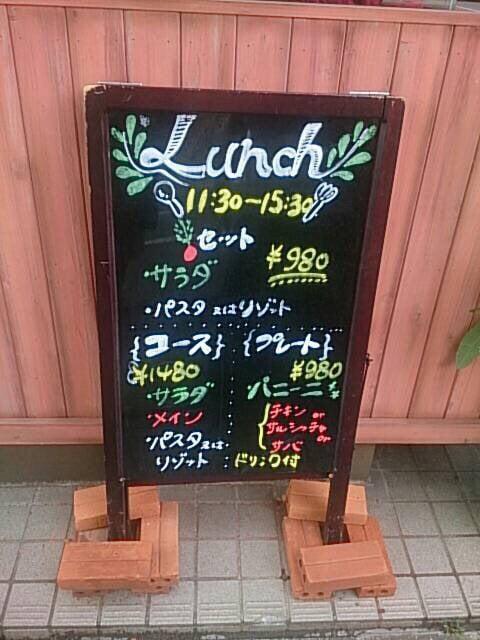 Lunch
11:30~15:30
セット
・サラダ ¥980
・パスタ又はリゾット
{コース}
¥1480
サラダ
メイン
パスタ又は
リゾット
{プレート}
¥980
パニーニ
チキン or
サルシッチャ or
サバ
ドリンク付